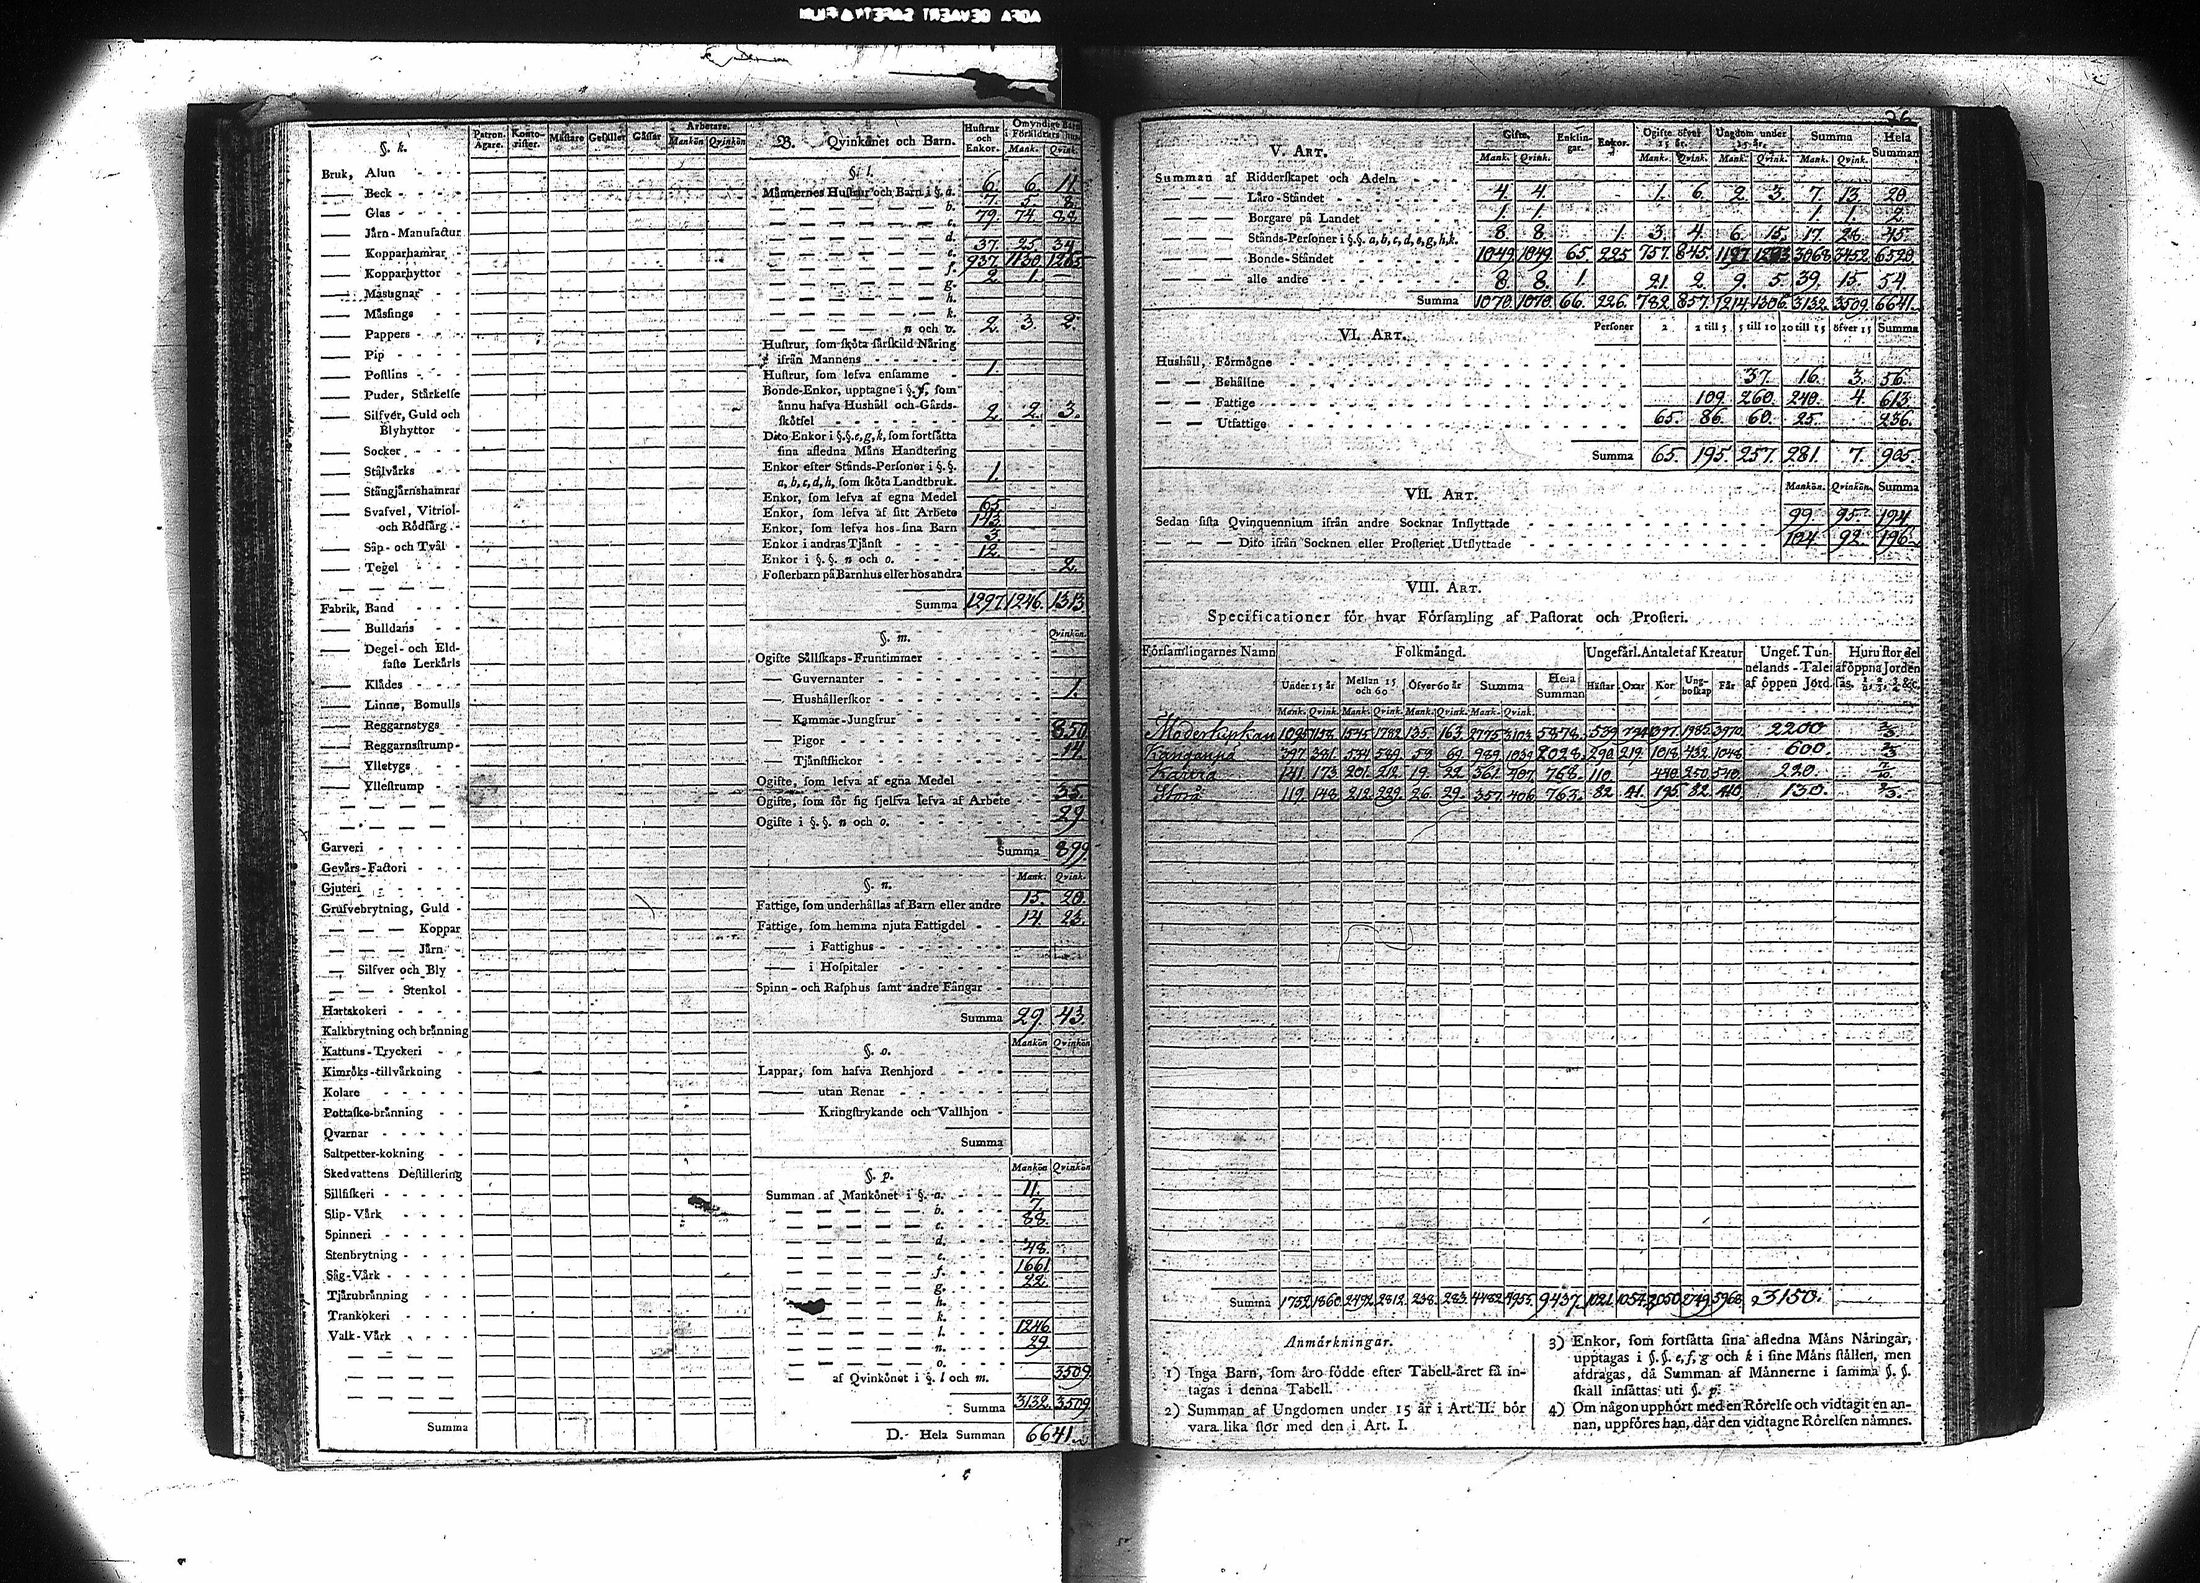 26
§. k.
Patron. Ägare.
Konto-rister.
Mästare
Gesäller
Gåssar
Arbetare.
Mankön Qvinkön
Bruk, Alun
— Beck
— Glas
— Järn-Manufactur
— Kopparhamrar
— Kopparhyttor
— Masugnar
— Mässings
— Pappers
— Pip
— Postlins
— Puder, Stårkelse
— Silfver, Guld och
Blyhyttor
— Socker
— Stålvårks
— Stångjårnshamrar
— Svafvel, Vitriol-
och Rödfårg
— Såp- och Tvål
— Tegel
Fabrik, Band
— Bulldans
— Degel- och Eld-
faste Lerkårls
— Klådes
— Linne, Bomulls
— Reggarnstygs
— Reggarnsstrump
— Ylletygs
— Yllestrump
Garveri
Gevårs-Factori
Gjuteri
Grufvebrytning, Guld
— — — Koppar
— — — Jårn
— Silfver och Bly
— — — Stenkol
Hartskokeri
Kalkbrytning och brånning
Kattuns-Tryckeri
Kimröks-tillvårkning
Kolare
Pottaske-brånning
Qvarnar
Saltpetter-kokning
Skedvattens Destillering
Sillfiskeri
Slip-Vårk
Spinneri
Stenbrytning
Såg-Vårk
Tjårubrånning
Trankokeri
Valk-Vårk
Summa
B. Qvinkönet och Barn.
Hustrur och Enkor.
Omyndige Barn i Föråldrars Hus
Mank. Qvink.
§. l.
Männernes Hustrur och Barn i §. a. 6. 6. 11.
b. 7. 5. 8.
c. 79. 74. 88.
d.
e. 37. 25. 34.
f. 937. 1130. 1265
g. 2. 1.
h.
k.
n och o. 2. 3. 2.
Hustrur, som sköta sårskild Nåring
ifrån Mannens
Hustrur, som lefva ensamme 1.
Bonde-Enkor, upptagne i §. f, som
ånnu hafva Hushåll och Gårds-
skötsel 2. 2. 3.
Dito Enkor i §.§. e, g, k, som fortsåtta
sina afledna Måns Handtering
Enkor efter Stånds-Personer i §.§.
a, b, c, d, h, som sköta Landtbruk. 1.
Enkor, som lefva af egna Medel 65
Enkor, som lefva af sitt Arbete
Enkor, som lefva hos sina Barn
Enkor i andras Tjånst 12.
Enkor i §.§. n och o.
Fosterbarn på Barnhus eller hos andra 2.
Summa 1297 1246. 1313
§. m.
Qvinkön.
Ogifte Sållskaps-Fruntimmer
— Guvernanter
— Hushållerskor 1.
— Kammar-Jungfrur
— Pigor 850
— Tjånstflickor 14.
Ogifte, som lefva af egne Medel
Ogifte, som för sig sjelfva lefva af Arbete 35.
Ogifte i §.§. n och o. 29
Summa 899.
§. n.
Mank. Qvink.
Fattige, som underhållas af Barn eller andre 15. 20.
Fattige, som hemma njuta Fattigdel 14. 23.
— i Fattighus
— i Hospitaler
Spinn- och Rasphus samt andre Fångar
Summa 29. 43.
§. o.
Mankön Qvinkön
Lappar, som hafva Renhjord
— utan Renar
— Kringstrykande och Vallhjon
Summa
§. p.
Mankön Qvinkön
Summan af Mankönet i §. a. 11.
b. 7.
c. 88.
d.
e. 48.
f. 1661
g. 22.
h.
k.
l. 1246.
n. 29.
o.
af Qvinkönet i §. l och m. 3509.
Summa 3132. 3509
D. Hela Summan 6641.
V. Art.
Gifte. Enklin-gar. Enkor. Ogifte öfver 15 år. Ungdom under 15 år. Summa Hela Summan
Mank. Qvink. Mank. Qvink. Mank. Qvink. Mank. Qvink.
Summan af Ridderskapet och Adeln
— — — Låro-Ståndet 4. 4. 1. 6. 2. 3. 7. 13. 20.
— — — Borgare på Landet 1. 1. 1. 1. 2.
— — — Stånds-Personer i §.§. a, b, c, d, e, g, h, k. 8. 8. 1. 3. 4. 6. 15. 17. 28. 45.
— — — Bonde-Ståndet 1049. 1049. 65. 225. 757. 845. 1197. 1283 3068 3452. 6520.
— — — alle andre 8. 8. 1. 21. 2. 9. 5. 39. 15. 54.
Summa 1070. 1070. 66. 226. 782. 857. 1214. 1306. 3132. 3509. 6641.
VI. Art.
Personer 2 2 till 5 5 till 10 10 till 15 öfver 15 Summa
Hushåll, Förmögne
— — Behållne 37. 16. 3. 56.
— — Fattige 109. 260. 240. 4. 613.
— — Utfattige 65. 86. 60. 25. 236.
Summa 65. 195. 257. 281. 7. 905.
VII. Art.
Mankön. Qvinkön. Summa
Sedan sista Qvinquennium ifrån andre Socknar Inflyttade 99. 95. 194
— — — Dito ifrån Socknen eller Prosteriet Utflyttade 104. 92. 196.
VIII. Art.
Specificationer för hvar Församling af Pastorat och Prosteri.
Församlingarnes Namn Folkmångd. Ungefårl. Antalet af Kreatur Ungef. Tun-nelands-Talet af öppen Jord. Huru stor del af öppna Jorden sås. ½, ⅔, ¾ &c.
Under 15 år Mellan 15 och 60 Öfver 60 år Summa Hela Summan Håstar Oxar Kor Ung-boskap Får
Mank. Qvink. Mank. Qvink. Mank. Qvink. Mank. Qvink.
Moderkyrkan 1095 1158. 1545. 1782. 135. 163. 2775. 3103. 5878. 539. 794. 1397. 1985. 3970. 2200 ⅔.
Kangånpä 397. 381. 534. 589. 58. 69. 989. 1039. 2028. 290. 219. 1018. 432. 1048. 600. ⅔
Karvia 141. 173. 201. 212. 19. 22. 361. 407. 768. 110. 440. 250. 540. 220. 7/10.
Storå 119. 148. 212. 229. 26. 29. 357. 406 763. 82. 41. 195. 82. 410. 130. ⅔.
Summa 1752. 1860. 2492. 2812. 238. 283. 4482. 4955. 9437. 1021. 1054. 3050. 2749. 5968. 3150.
Anmårkningar.
1) Inga Barn, som åro födde efter Tabell-året få in-
tagas i denna Tabell.
2) Summan af Ungdomen under 15 år i Art. II. bör
vara lika stor med den i Art. I.
3) Enkor, som fortsåtta sina afledna Måns Nåringar,
upptagas i §.§. e, f, g och k i sine Måns stållen, men
afdragas, då Summan af Månnerne i samma §.§.
skall insåttas uti §. p.
4) Om någon upphört med en Rörelse och vidtagit en an-
nan, uppföres han, dår den vidtagne Rörelsen nåmnes.